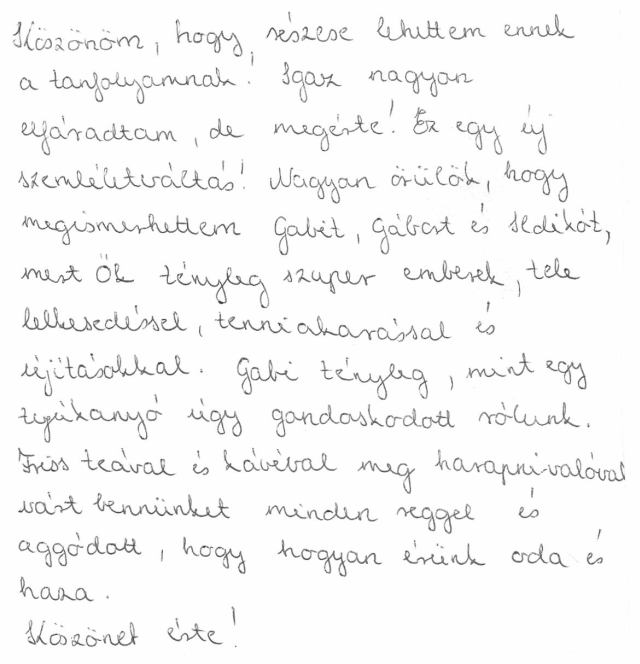 Köszönöm, hogy részese lehettem ennek
a tanfolyamnak! Igaz nagyon
elfáradtam, de megérte! Ez egy új
szemléletváltás! Nagyon örülök, hogy
megismerhettem Gabit, Gábort és Ildikót,
mert Ők tényleg szuper emberek, tele
lelkesedéssel, tenniakarással és
újításokkal. Gabi tényleg, mint egy
tyúkanyó úgy gondoskodott rólunk.
Friss teával és kávéval meg harapnivalóval
várt bennünket minden reggel és
aggódott, hogy hogyan érünk oda és
haza.
Köszönet érte!